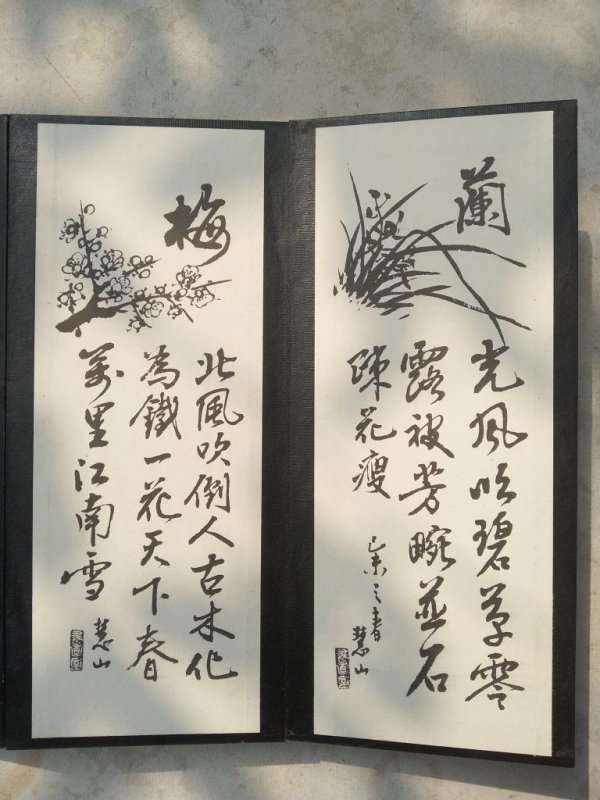 蘭
光風吹碧草零
露被芳畹並石
疎花瘦
己未之春
慧山
梅
北風吹倒人古木化
為鐵一花天下春
萬里江南雪
慧山